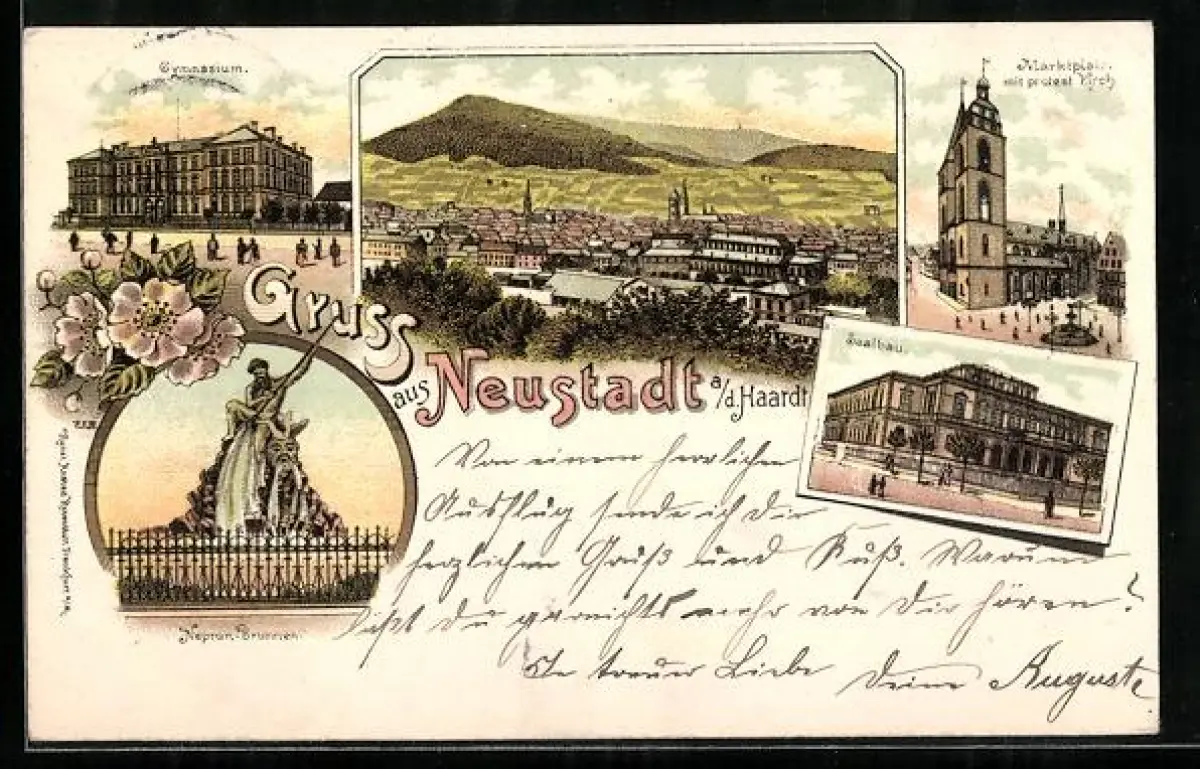 Gymnasium.
Marktplatz
mit protest Kirch
Gruss
aus Neustadt a/d. Haardt
Saalbau.
Neptun-Brunnen
Von einem herrlichen
Ausflug sende ich Dir
herzlichen Gruß und Kuß. Warum
läßt du garnichts mehr von Dir hören?
In treuer Liebe Deine Auguste